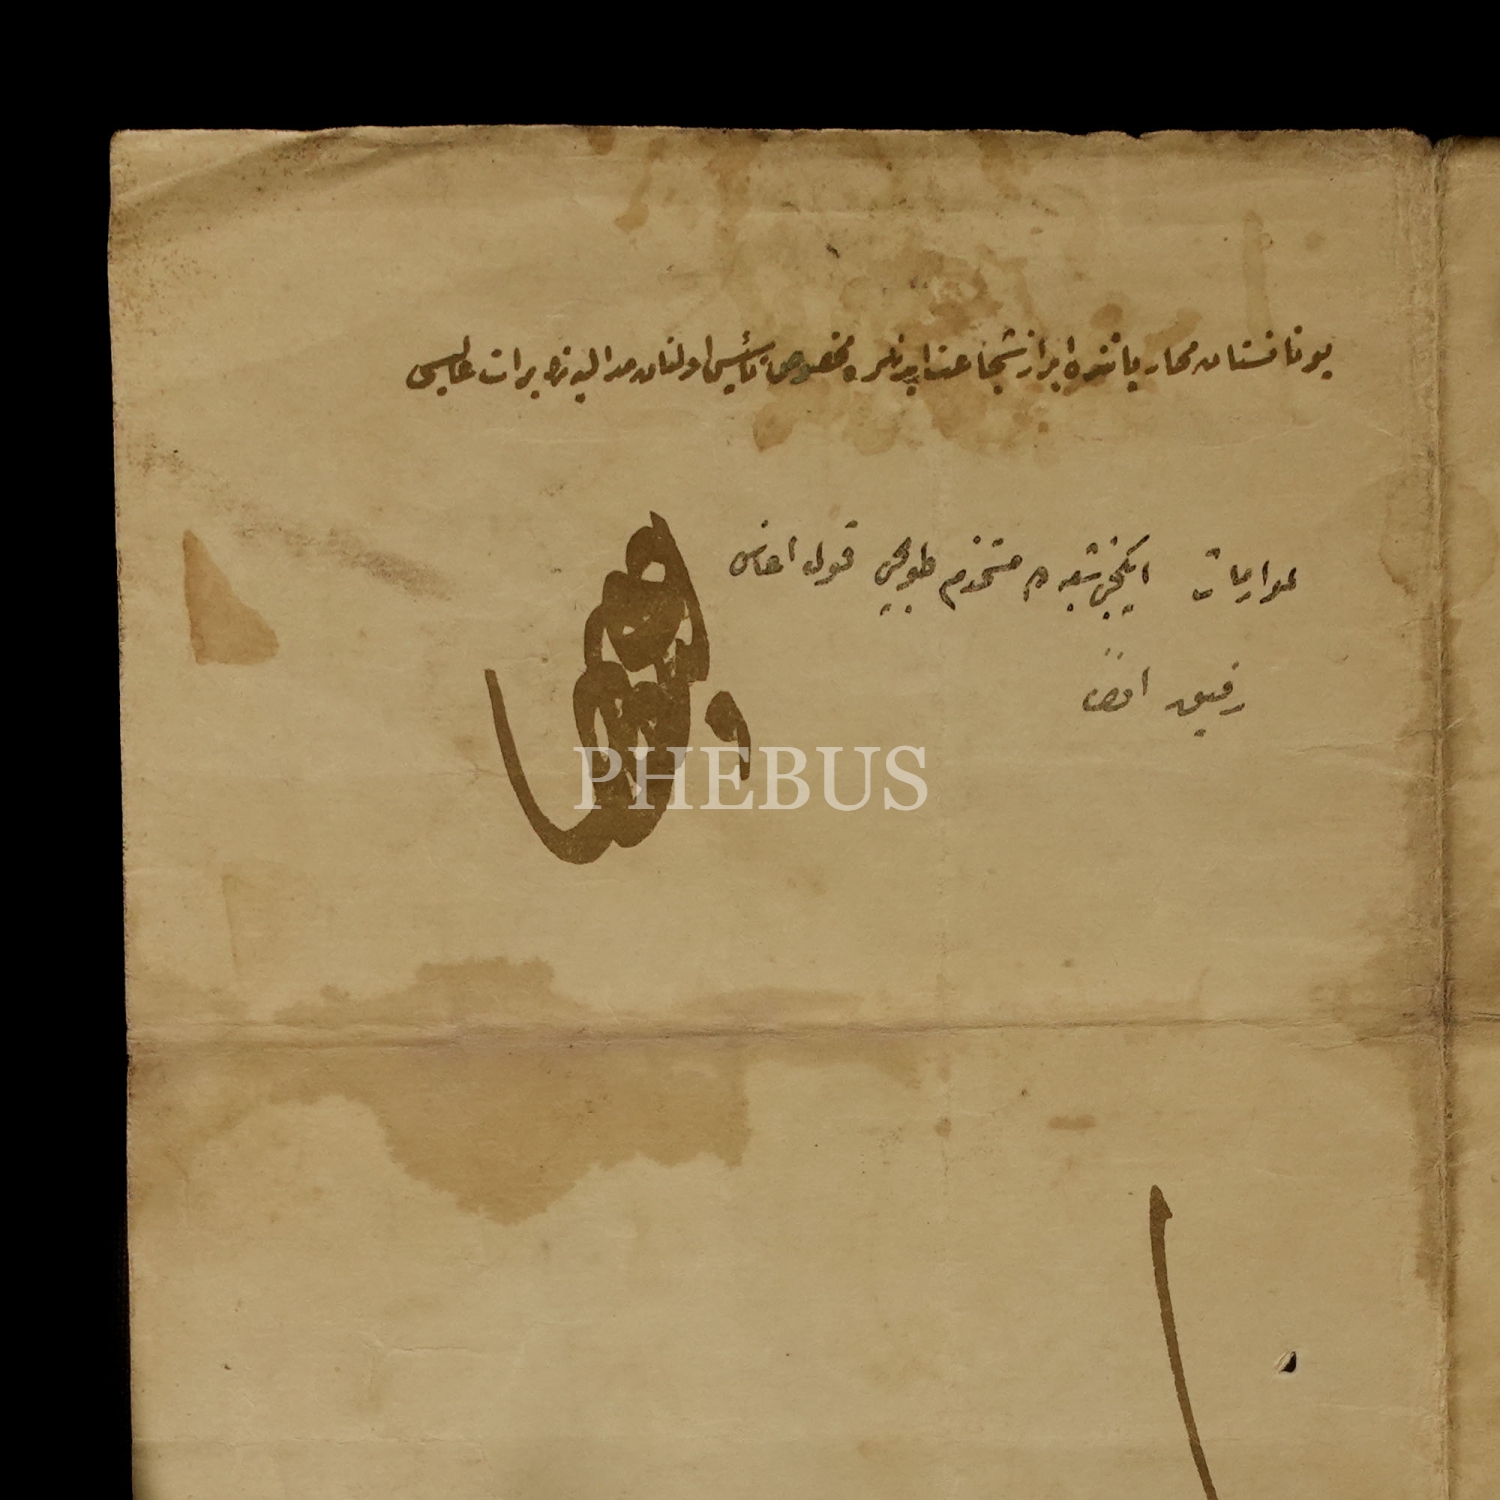 يونانستان محاربه‌سنده ابراز شجاعت ايدنلره مخصوص تأسيس اولنان مداليه‌نڭ برات عاليسى
ايكنجى شعبه ده مستخدم طوپجى قول اغاسى
رفيق افندى
PHEBUS